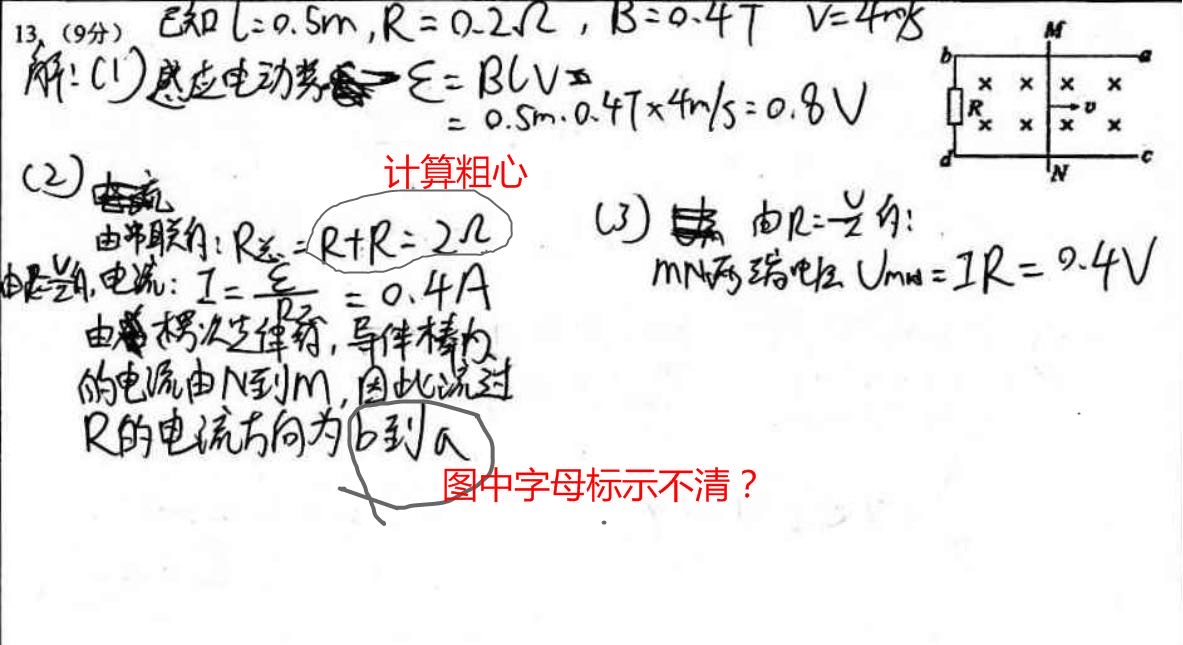 13. (9分) 已知 l=0.5m, R=0.2Ω, B=0.4T V=4m/s
解:(1)感应电动势 ε=BLV
= 0.5m·0.4T×4m/s=0.8V
(2)
由串联得: R总=R+R=2Ω
电流: I=ε/R总=0.4A
由楞次定律得, 导体棒内
的电流由N到M, 因此流过
R的电流方向为b到a
计算粗心
图中字母标示不清？
(3) 由R=U/I得:
MN两端电压 UMN=IR=0.4V
M
b a
× × × ×
R v
× × × ×
d c
N